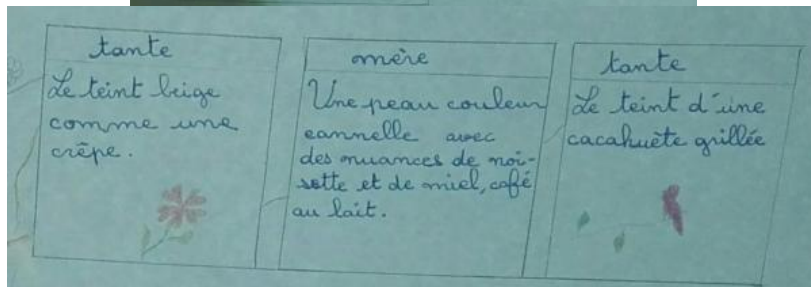 tante
Le teint beige
comme une
crêpe.
mère
Une peau couleur
cannelle avec
des nuances de noi-
sette et de miel, café
au lait.
tante
Le teint d'une
cacahuète grillée